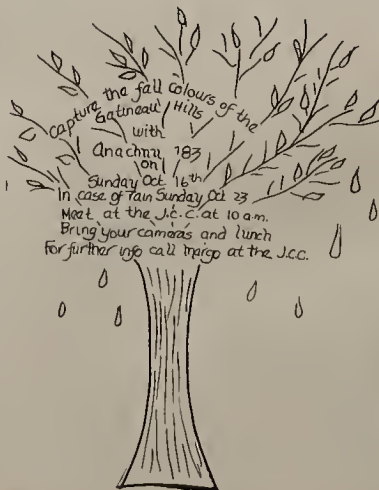 Capture the fall colours of the
Gatineau Hills
with
Anachnu '83
on
Sunday Oct 16th
In case of rain Sunday Oct 23
Meet at the J.C.C. at 10 a.m.
Bring your cameras and lunch
For further info call Margo at the J.C.C.